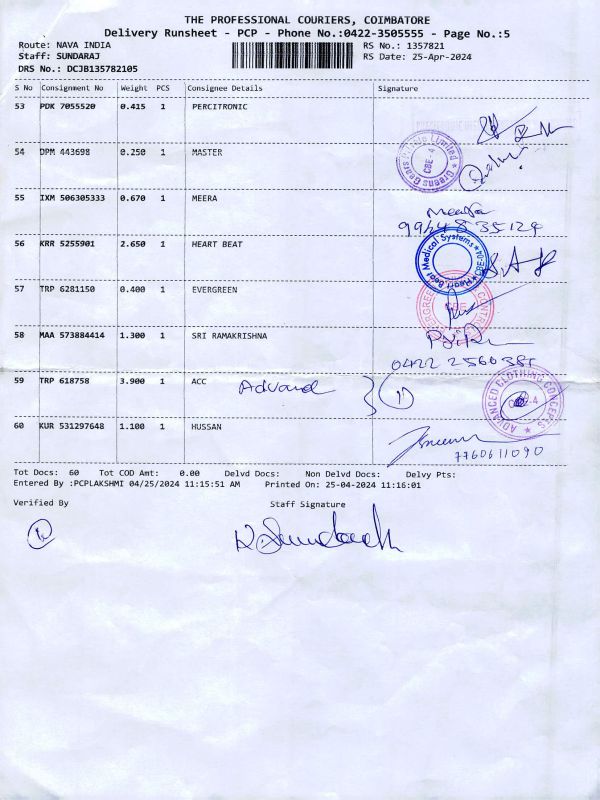 THE PROFESSIONAL COURIERS, COIMBATORE
Delivery Runsheet - PCP - Phone No.:0422-3505555 - Page No.:5
Route: NAVA INDIA RS No.: 1357821
Staff: SUNDARAJ RS Date: 25-Apr-2024
DRS No.: DCJB135782105
S No Consignment No Weight PCS Consignee Details Signature
53 PDK 7055520 0.415 1 PERCITRONIC
54 DPM 443698 0.250 1 MASTER
55 IXM 506305333 0.670 1 MEERA Meera
99448 35124
56 KRR 5255901 2.650 1 HEART BEAT
Heart Beat Medical Systems
57 TRP 6281150 0.400 1 EVERGREEN
EVERGREEN
58 MAA 573884414 1.300 1 SRI RAMAKRISHNA
0422 2560381
59 TRP 618758 3.900 1 ACC
ADVANCED CLOTHING CONCEPTS
60 KUR 531297648 1.100 1 HUSSAN
7760611090
Tot Docs: 60 Tot COD Amt: 0.00 Delvd Docs: Non Delvd Docs: Delvy Pts:
Entered By :PCPLAKSHMI 04/25/2024 11:15:51 AM Printed On: 25-04-2024 11:16:01
Verified By Staff Signature